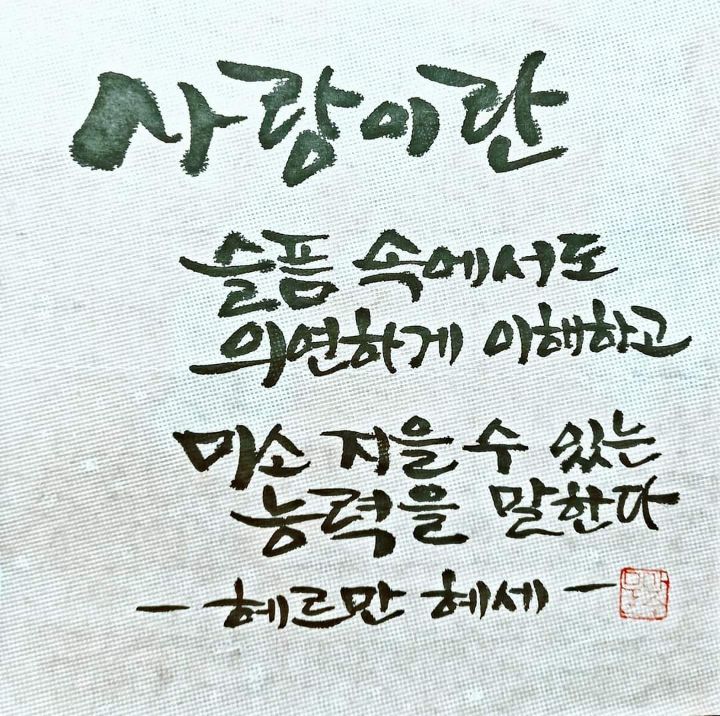 사랑이란
슬픔 속에서도
의연하게 이해하고
미소 지을 수 있는
능력을 말한다
- 헤르만 헤세 -